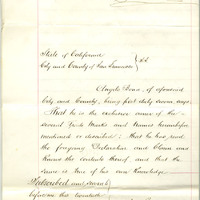 State of California
City and County of San Francisco } SS
Angelo                of aforesaid
City and County, being first duly sworn, says:
That he is the exclusive owner of the
                Marks and Names hereinbefore
mentioned is described; That he has read
the foregoing Declaration and Claim and
knows the contents thereof and that the
same is true of his own knowledge.
Subscribed and sworn to
before me this